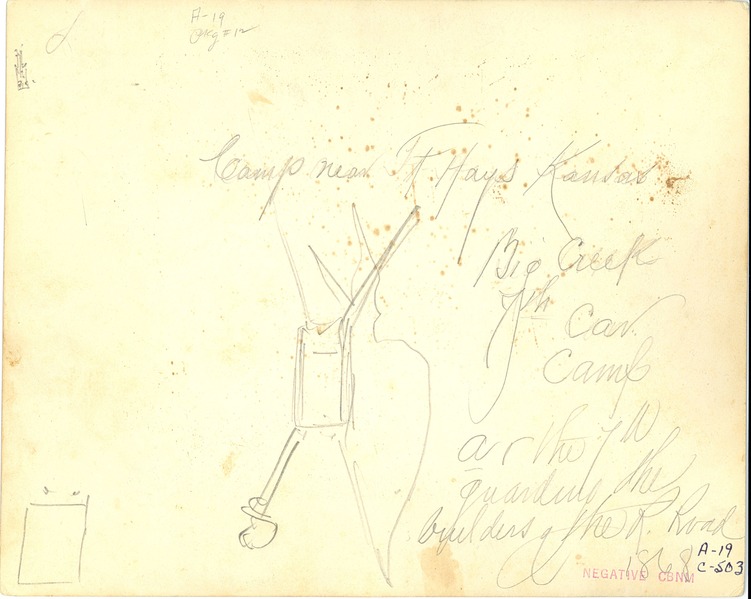 A-19
Camp near Ft Hays Kansas
Big Creek
7th Cav.
Camp
guarding the
builders of the R. Road
1868
A-19
C-503
NEGATIVE CBNM